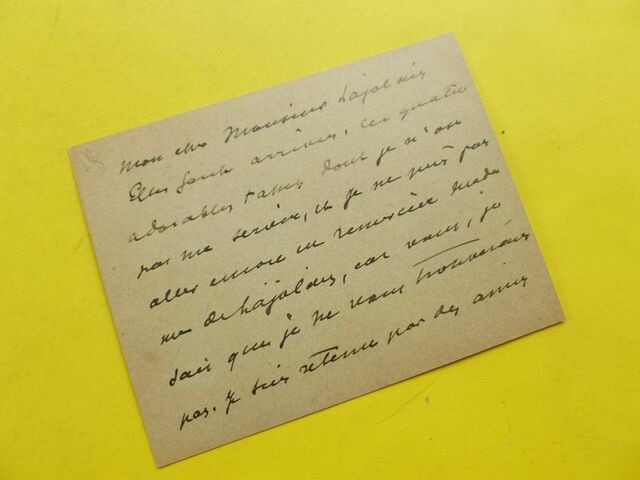 Mon cher Monsieur Lajolais
Elles sont arrivées, ces quatre
adorables tasses dont je n'ose
pas me servir, et je ne puis pas
aller encore en remercier Mada
me de Lajolais, car vous, je
sais que je ne vous trouverais
pas. Je suis retenue par des amis